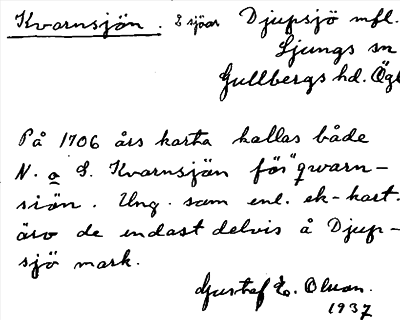 Kvarnsjön. 2 sjöar Djupsjö mfl.
Ljungs sn
Gullbergs hd. Ögl
På 1706 års karta kallas både
N. o S. Kvarnsjön för "qwarn-
siön. Ung. som enl. ek-kart.
äro de endast delvis å Djup-
sjö mark.
Gustaf E. Olson.
1937